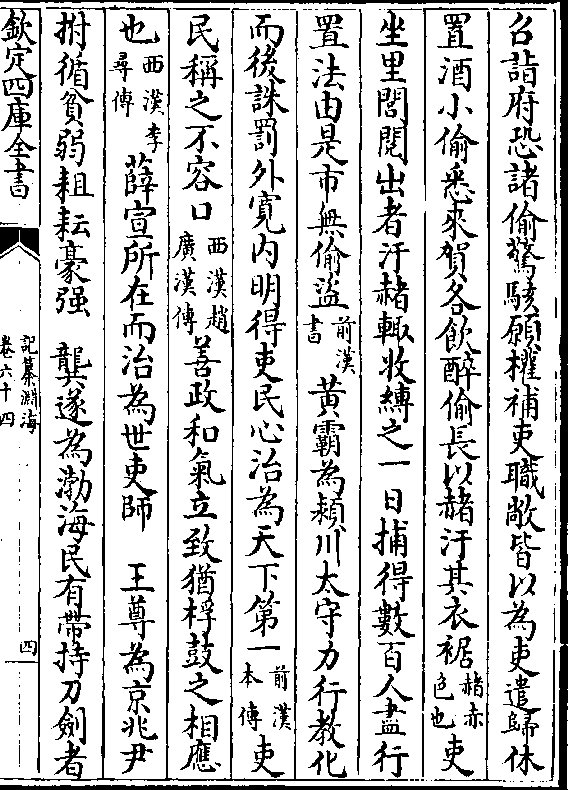 召詣府恐諸偷驚駭願權補吏職敞皆以為吏遣歸休
置酒小偷悉來賀各飲醉偷長以赭汙其衣裾赭赤色也吏
坐里閭閱出者汙赭輙收縛之一日捕得數百人盡行
置法由是市無偷盜前漢書 黄霸為潁川太守力行教化
而後誅罰外寛内明得吏民心治為天下第一前漢本傳吏
民稱之不容口西漢趙廣漢傳善政和氣立致猶桴鼓之相應
也西漢李尋傳 薛宣所在而治為世吏師 王尊為京兆尹
拊循貧弱耝耘豪强 龔遂為渤海民有帶持刀劍者
欽定四庫全書
記纂淵海
卷六十四
四